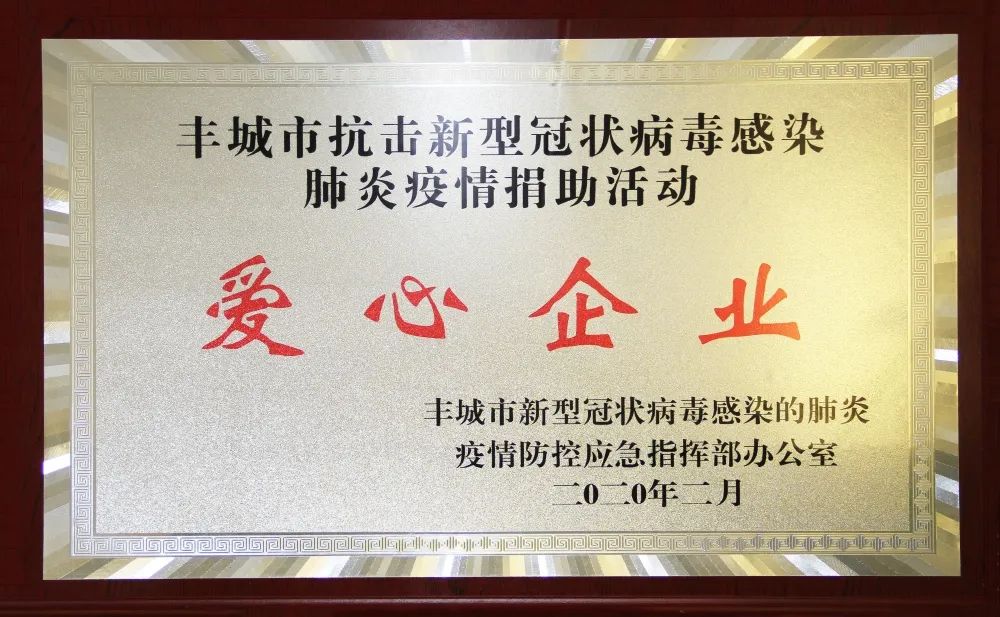 丰城市抗击新型冠状病毒感染
肺炎疫情捐助活动
爱心企业
丰城市新型冠状病毒感染的肺炎
疫情防控应急指挥部办公室
二0二0年二月